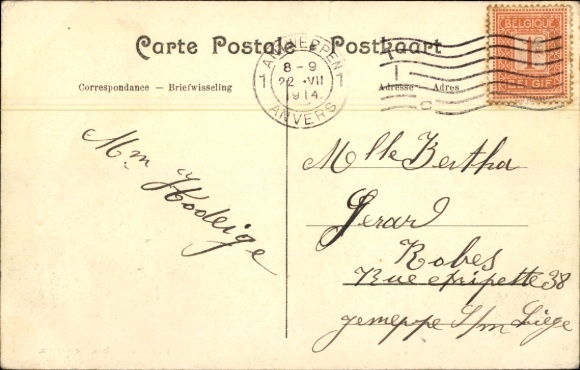 Carte Postale Postkaart
Correspondance — Briefwisseling
Adresse Adres
1 ANTWERPEN 1
8-9
22 VII
1914
ANVERS
BELGIQUE
1
BELGIË
Mm Hodeige
Mlle Bertha
Gerard
Robes
Rue 38
Jemeppe S/m Liége